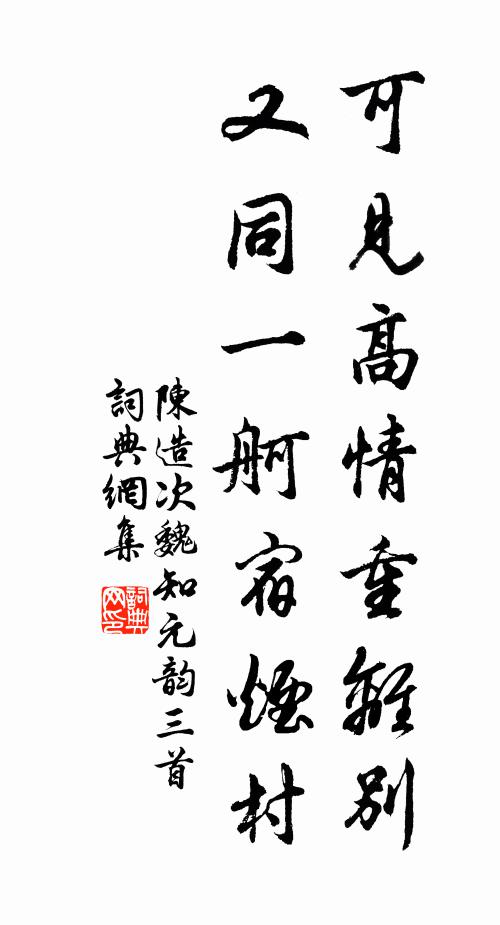 可見高情重離別
又同一舸宿煙村
陳造次魏知元韵三首
詞典網集
詞典网印